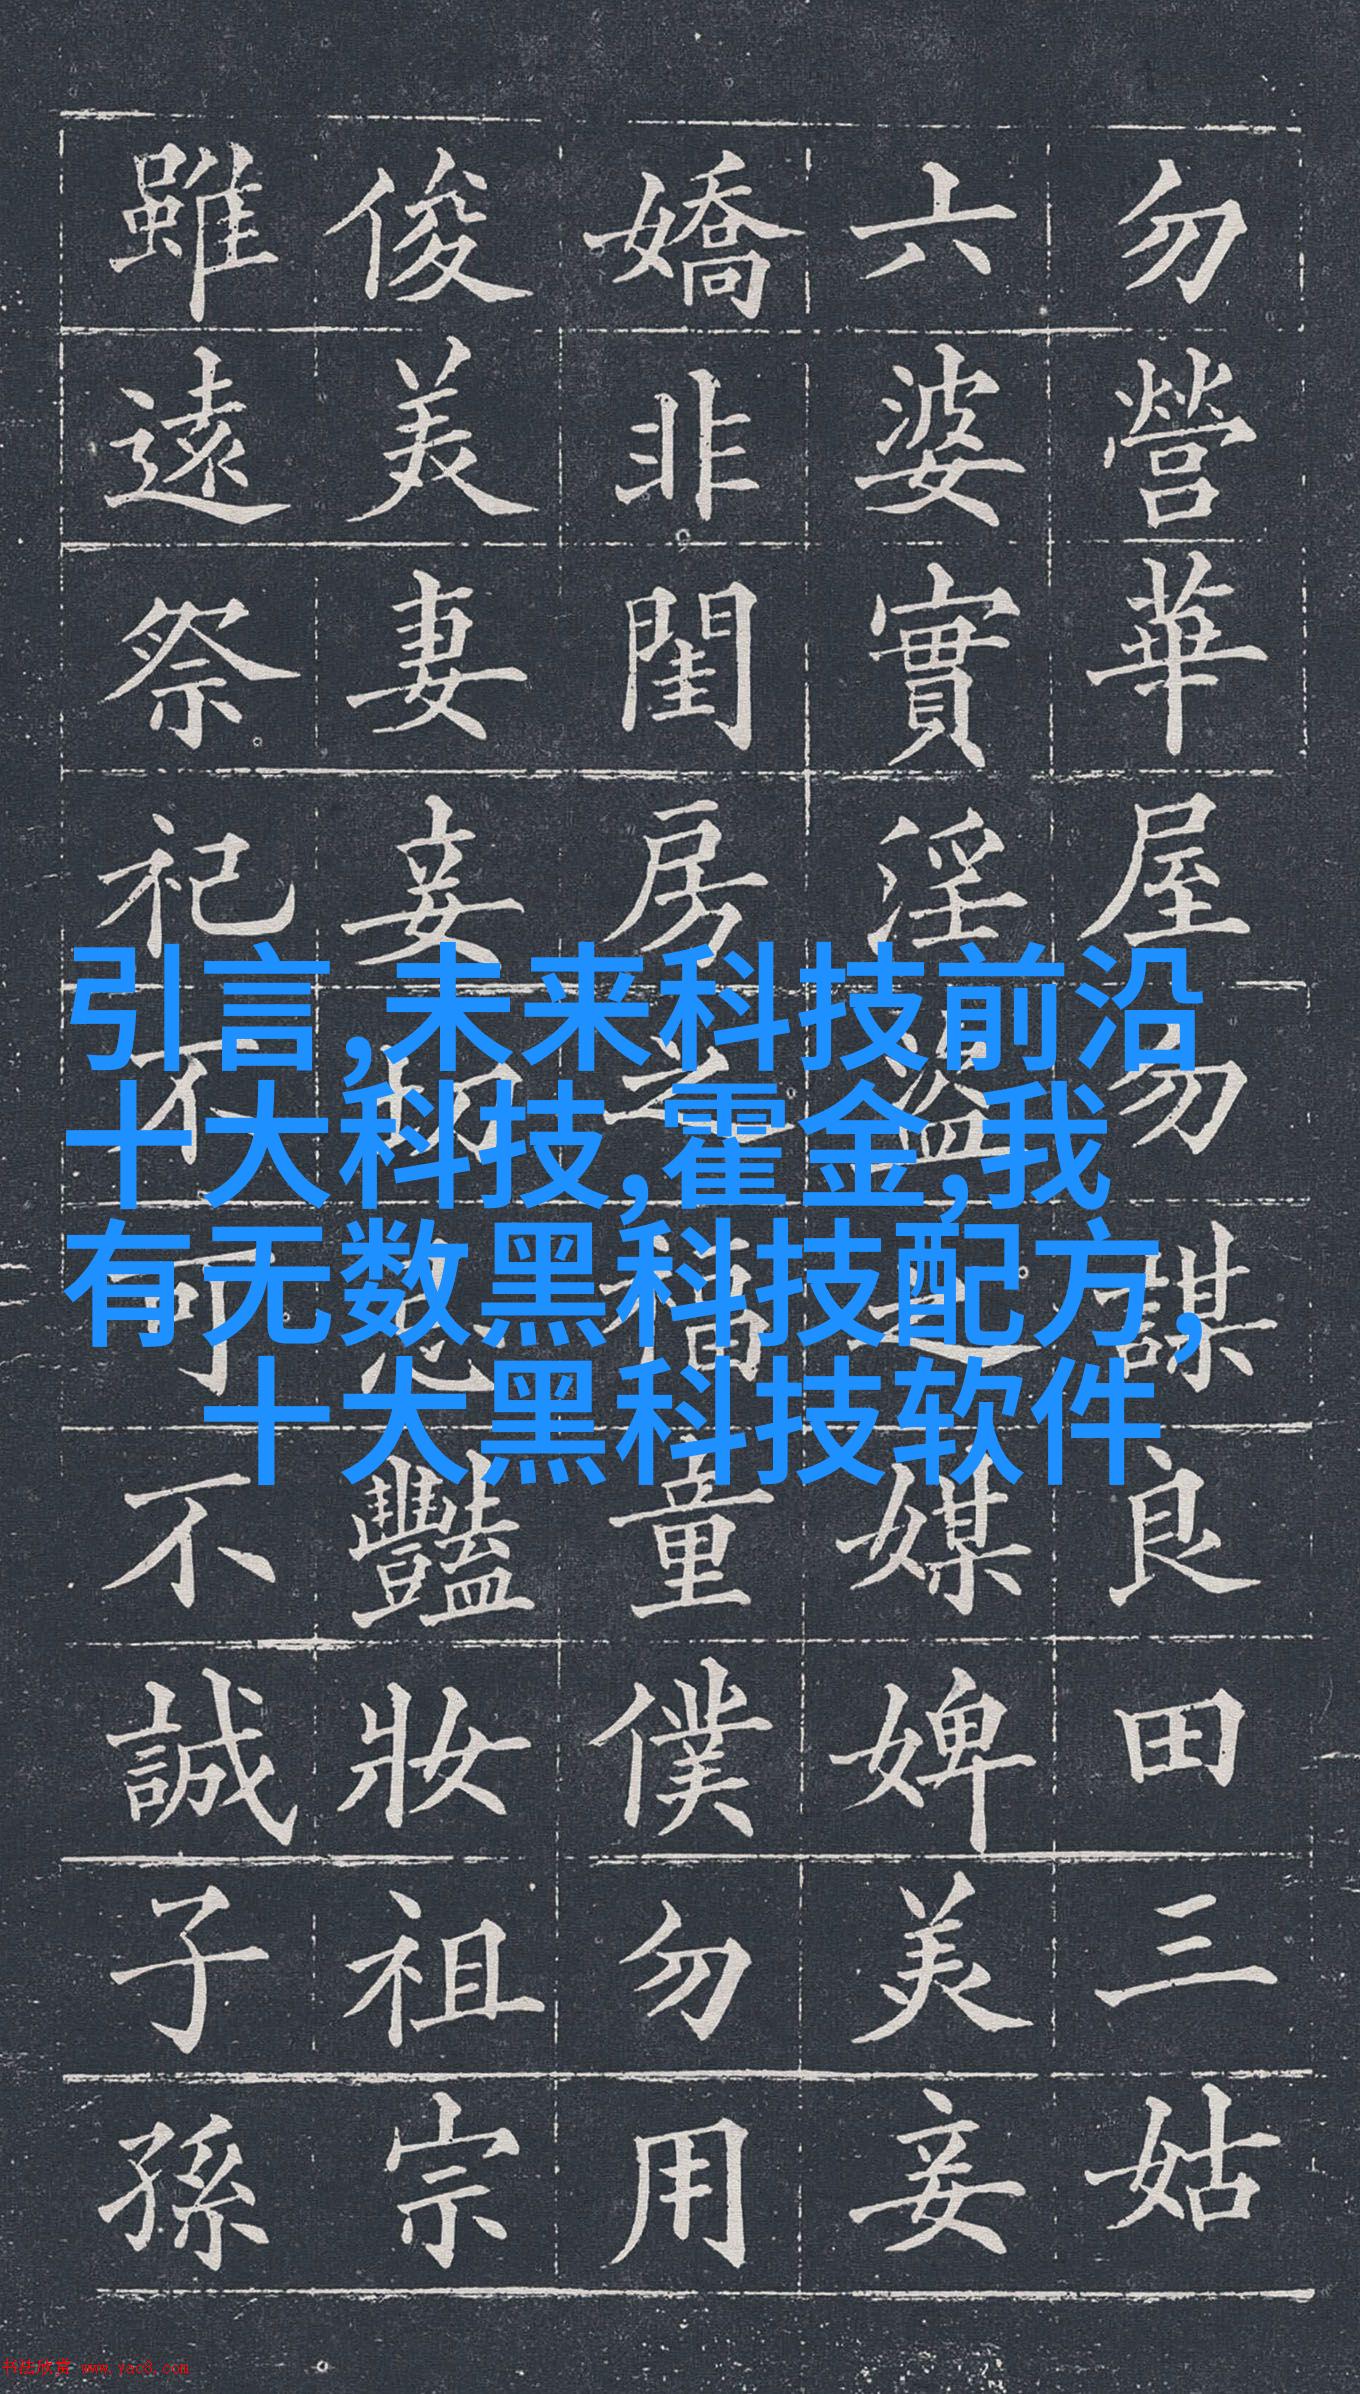 勿營華屋勿謀良田三姑
六婆實淫盜之媒婢美妾
嬌非閨房之福童僕勿用
俊美妻妾切忌豔妝祖宗
雖遠祭祀不可不誠子孫
引言,未来科技前沿
十大科技,霍金,我
有无数黑科技配方,
十大黑科技软件
书法欣赏 www.yac8.com